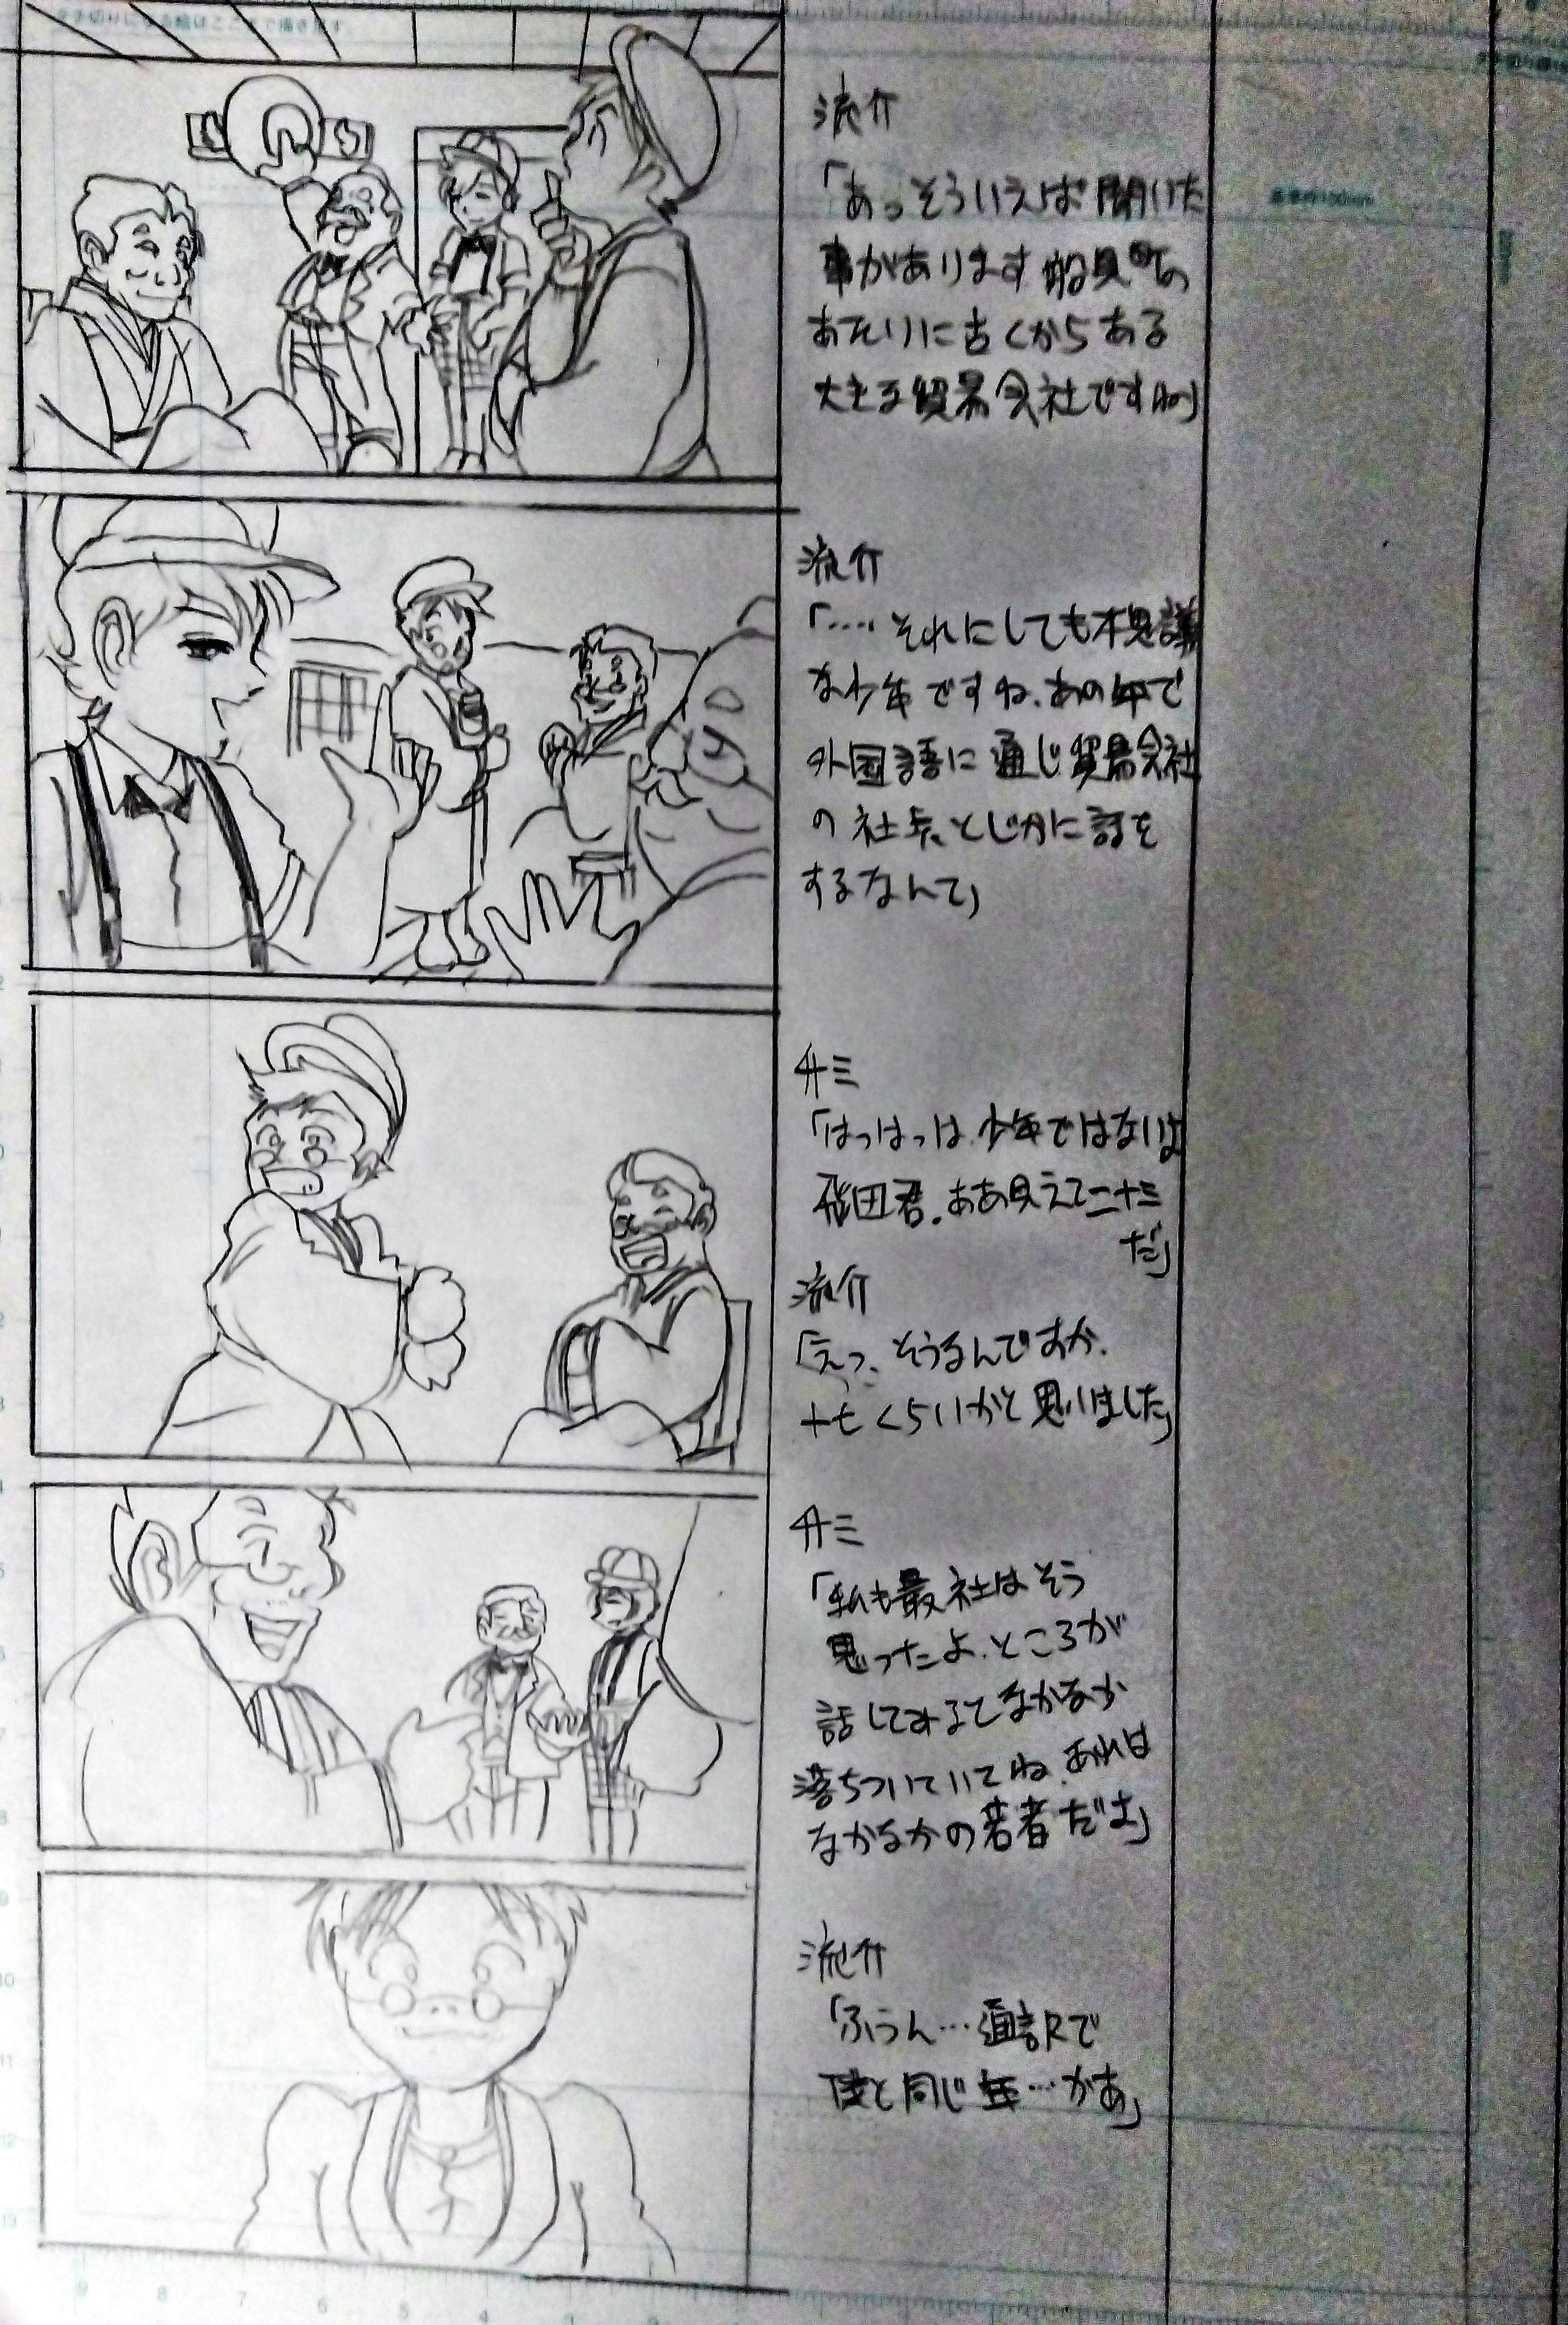 流介
「あっそういえば聞いた
事があります船見町の
あたりに古くからある
大きな貿易会社ですね」
流介
「…‥それにしても不思議
な少年ですね、あの年で
外国語に通じ貿易会社
の社長とじかに話を
するなんて」
升三
「はっはっは、少年ではないよ
砣田君。ああ見えて二十三
だ」
流介
「えっ、そうなんですか、
十七くらいかと思いました」
升三
「私も最社はそう
思ったよ、ところが
話してみるとなかなか
落ちついていてね、あれは
なかなかの若者だよ」
流介
「ふうん…通訳で
僕と同じ年…かあ」